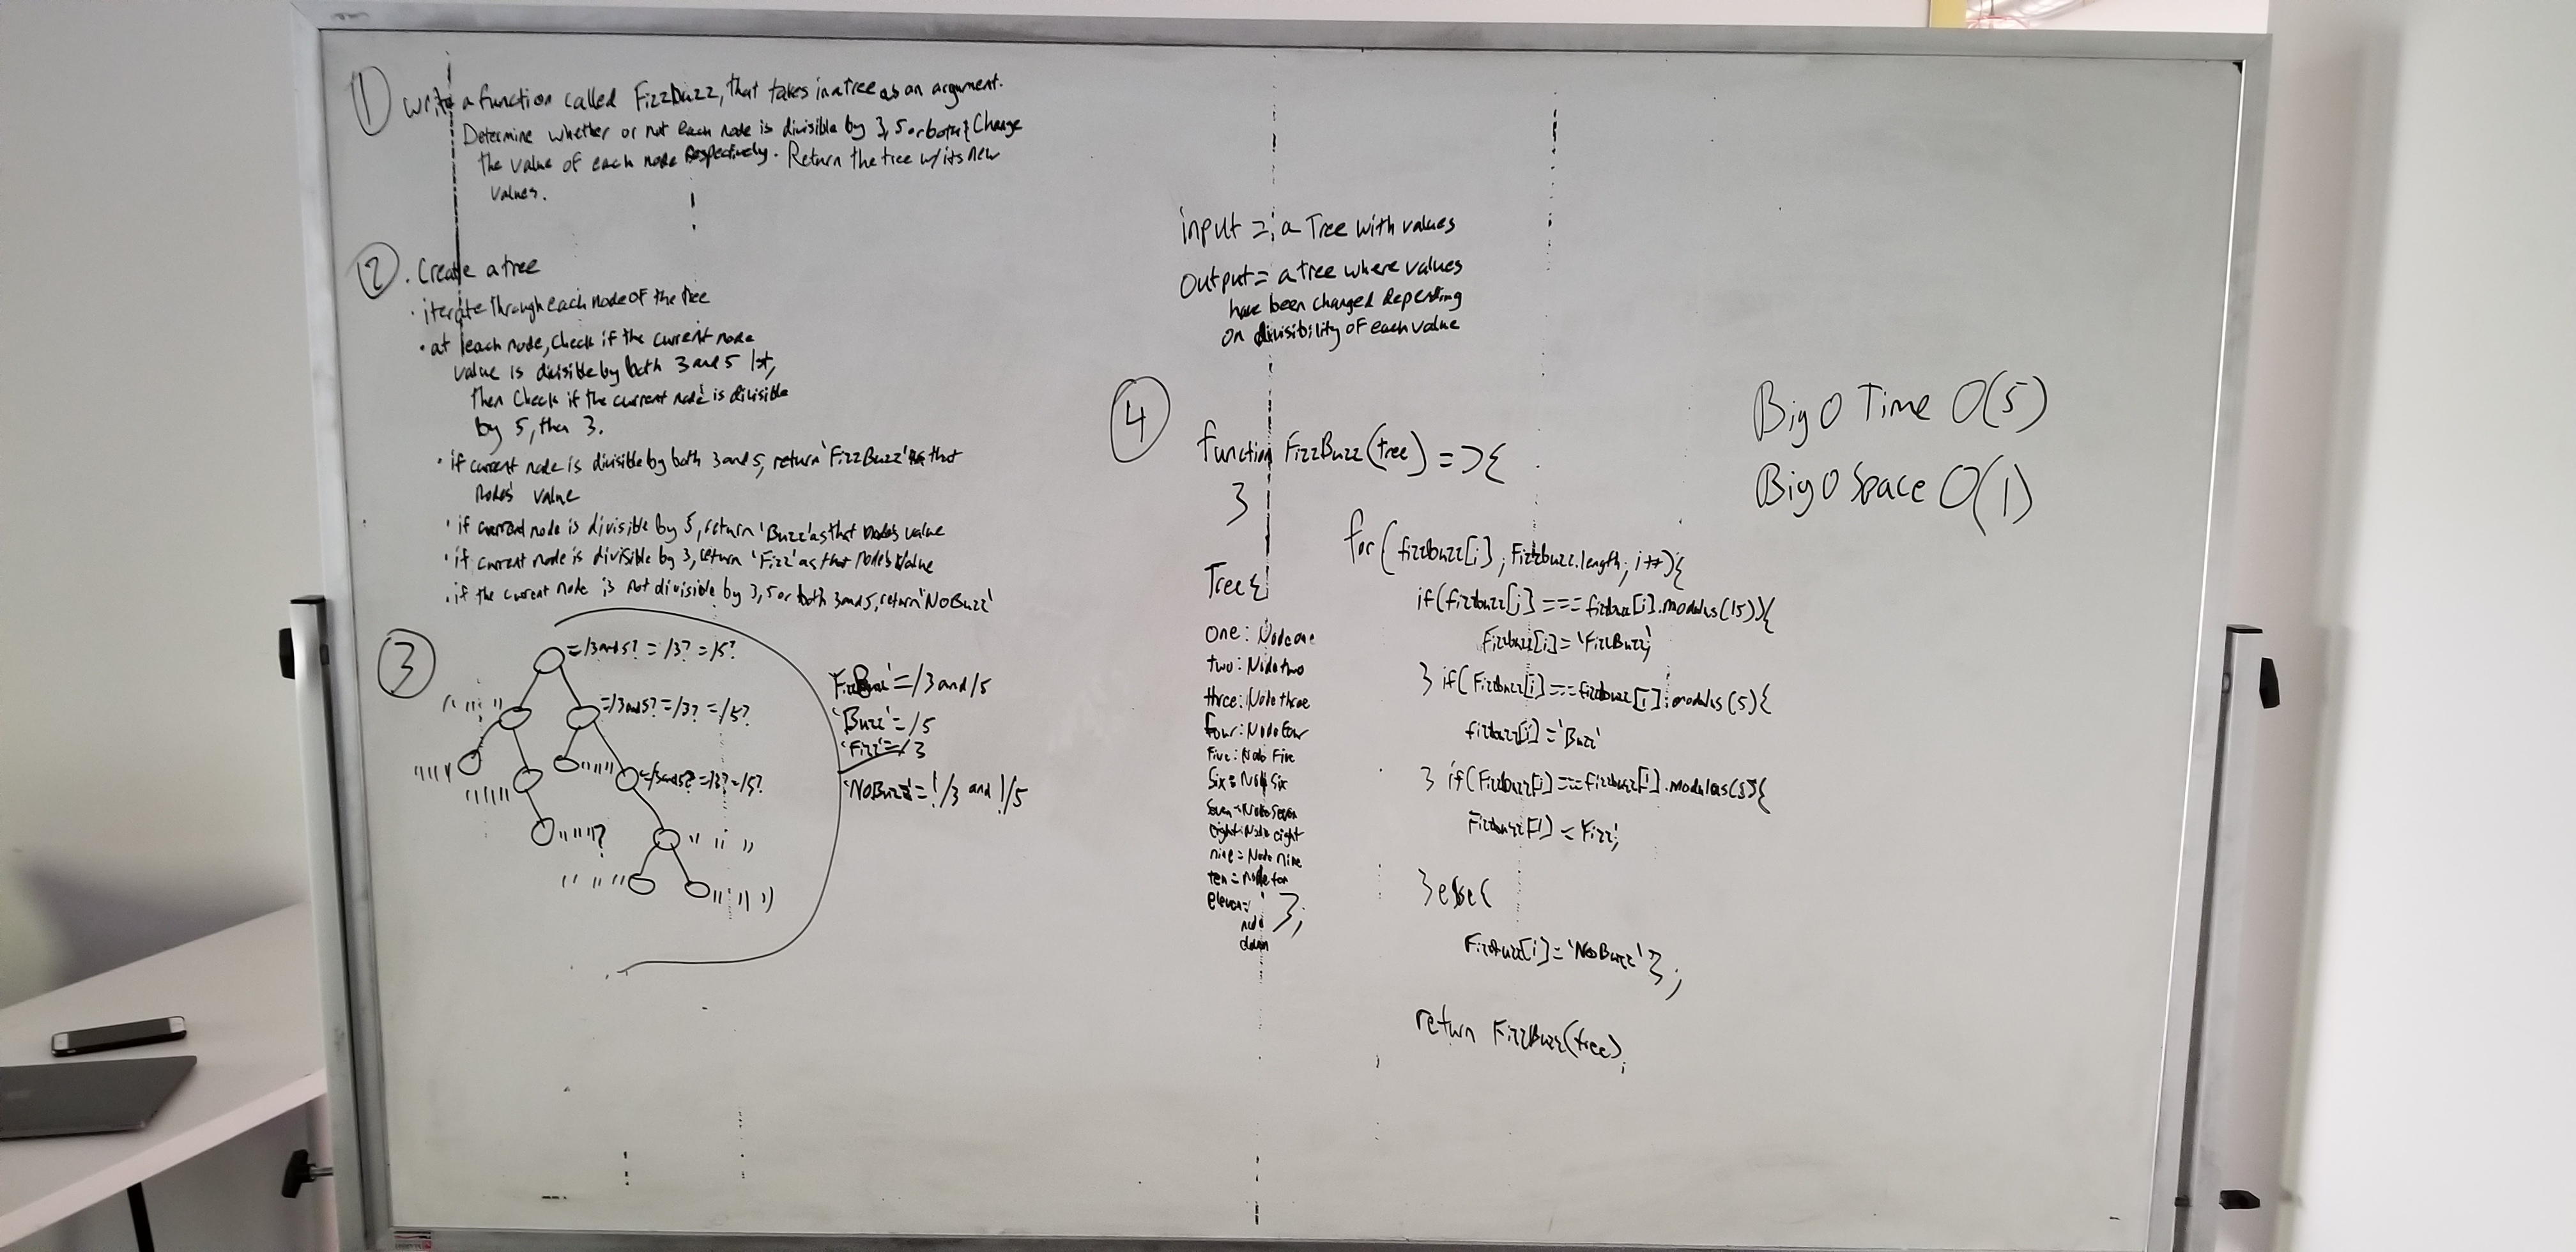 ① Write a function called FizzBuzz, that takes in a tree as an argument.
Determine whether or not each node is divisible by 3, 5 or both & Change
the value of each node respectively. Return the tree w/ its new
values.
② . Create a tree
· iterate through each node of the tree
· at each node, Check if the current node
value is divisible by both 3 and 5 1st,
then Check if the current node is divisible
by 5, then 3.
· if current node is divisible by both 3 and 5, return 'FizzBuzz' as that
nodes' value
· if current node is divisible by 5, return 'Buzz' as that nodes value
· if current node is divisible by 3, return 'Fizz' as that nodes value
. if the current node is not divisible by 3, 5 or both 3 and 5, return 'NoBuzz'
③
=/3and5? =/3? =/5?
=/3and5? =/3? =/5?
=/3and5? =/3? =/5?
FizzBuzz' =/3 and /5
'Buzz' =/5
'Fizz' =/3
'NoBuzz' = !/3 and !/5
input = a Tree with values
Output = a tree where values
have been changed depending
on divisibility of each value
④
function FizzBuzz(tree) => {
}
Tree {
one: Node one
two: Node two
three: Node three
four: Node four
Five: Node Five
Six: Node Six
Seven: Node Seven
eight: Node eight
nine = Node nine
ten = Node ten
eleven =
node
};
for(fizzbuzz[i]; Fizzbuzz.length; i++){
if(fizzbuzz[i] === fizzbuzz[i].modulus(15)){
Fizzbuzz[i] = 'FizzBuzz;
} if(Fizzbuzz[i] === fizzbuzz[i].modulus(5){
fizzbuzz[i] = 'Buzz'
} if(Fizzbuzz[i] === fizzbuzz[i].modulus(3){
Fizzbuzz[i] = 'Fizz';
} else {
Fizzbuzz[i] = 'NoBuzz' };
return FizzBuzz(tree);
Big O Time O(5)
Big O Space O(1)